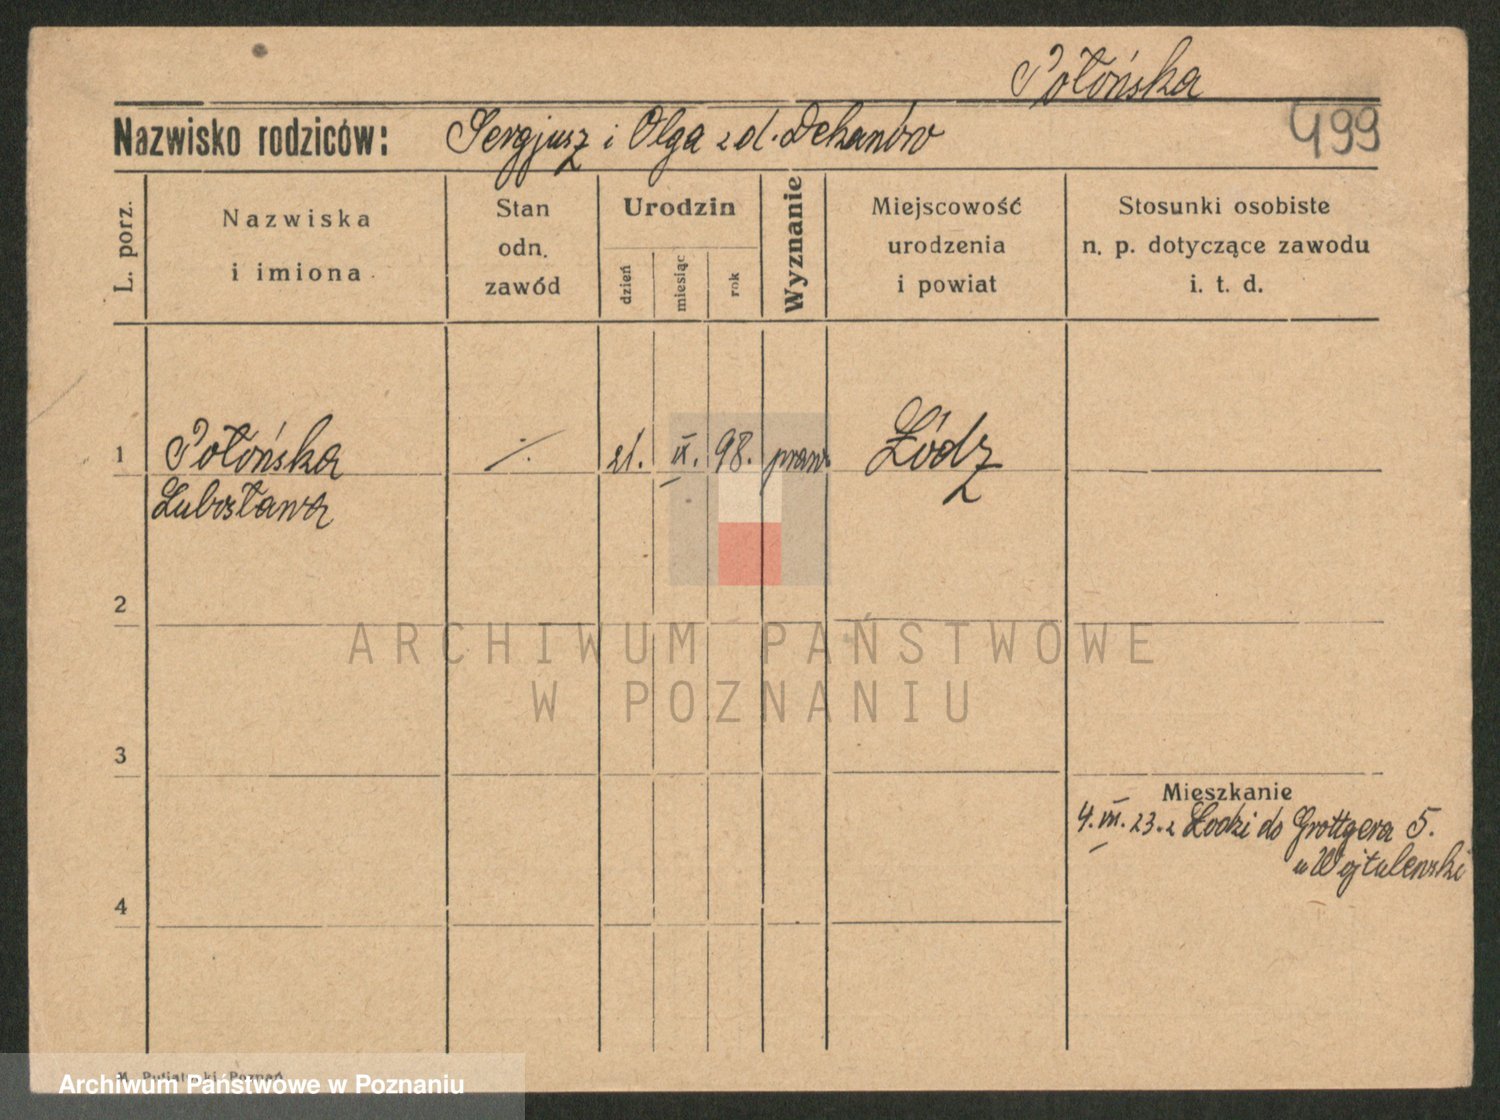 Połońska
Nazwisko rodziców: Sergjusz i Olga z d. Dekanów
499
L. porz.
Nazwiska
i imiona
Stan
odn.
zawód
Urodzin
dzień
miesiąc
rok
Wyznanie
Miejscowość
urodzenia
i powiat
Stosunki osobiste
n. p. dotyczące zawodu
i. t. d.
1 Połońska ./. 21. II. 98. praw. Łódz
Lubosława
2
ARCHIWUM PAŃSTWOWE
W POZNANIU
3
Mieszkanie
4. VII. 23. z Łodzi do Grottgera 5.
u Wojtulewski
4
Poznań
Archiwum Państwowe w Poznaniu